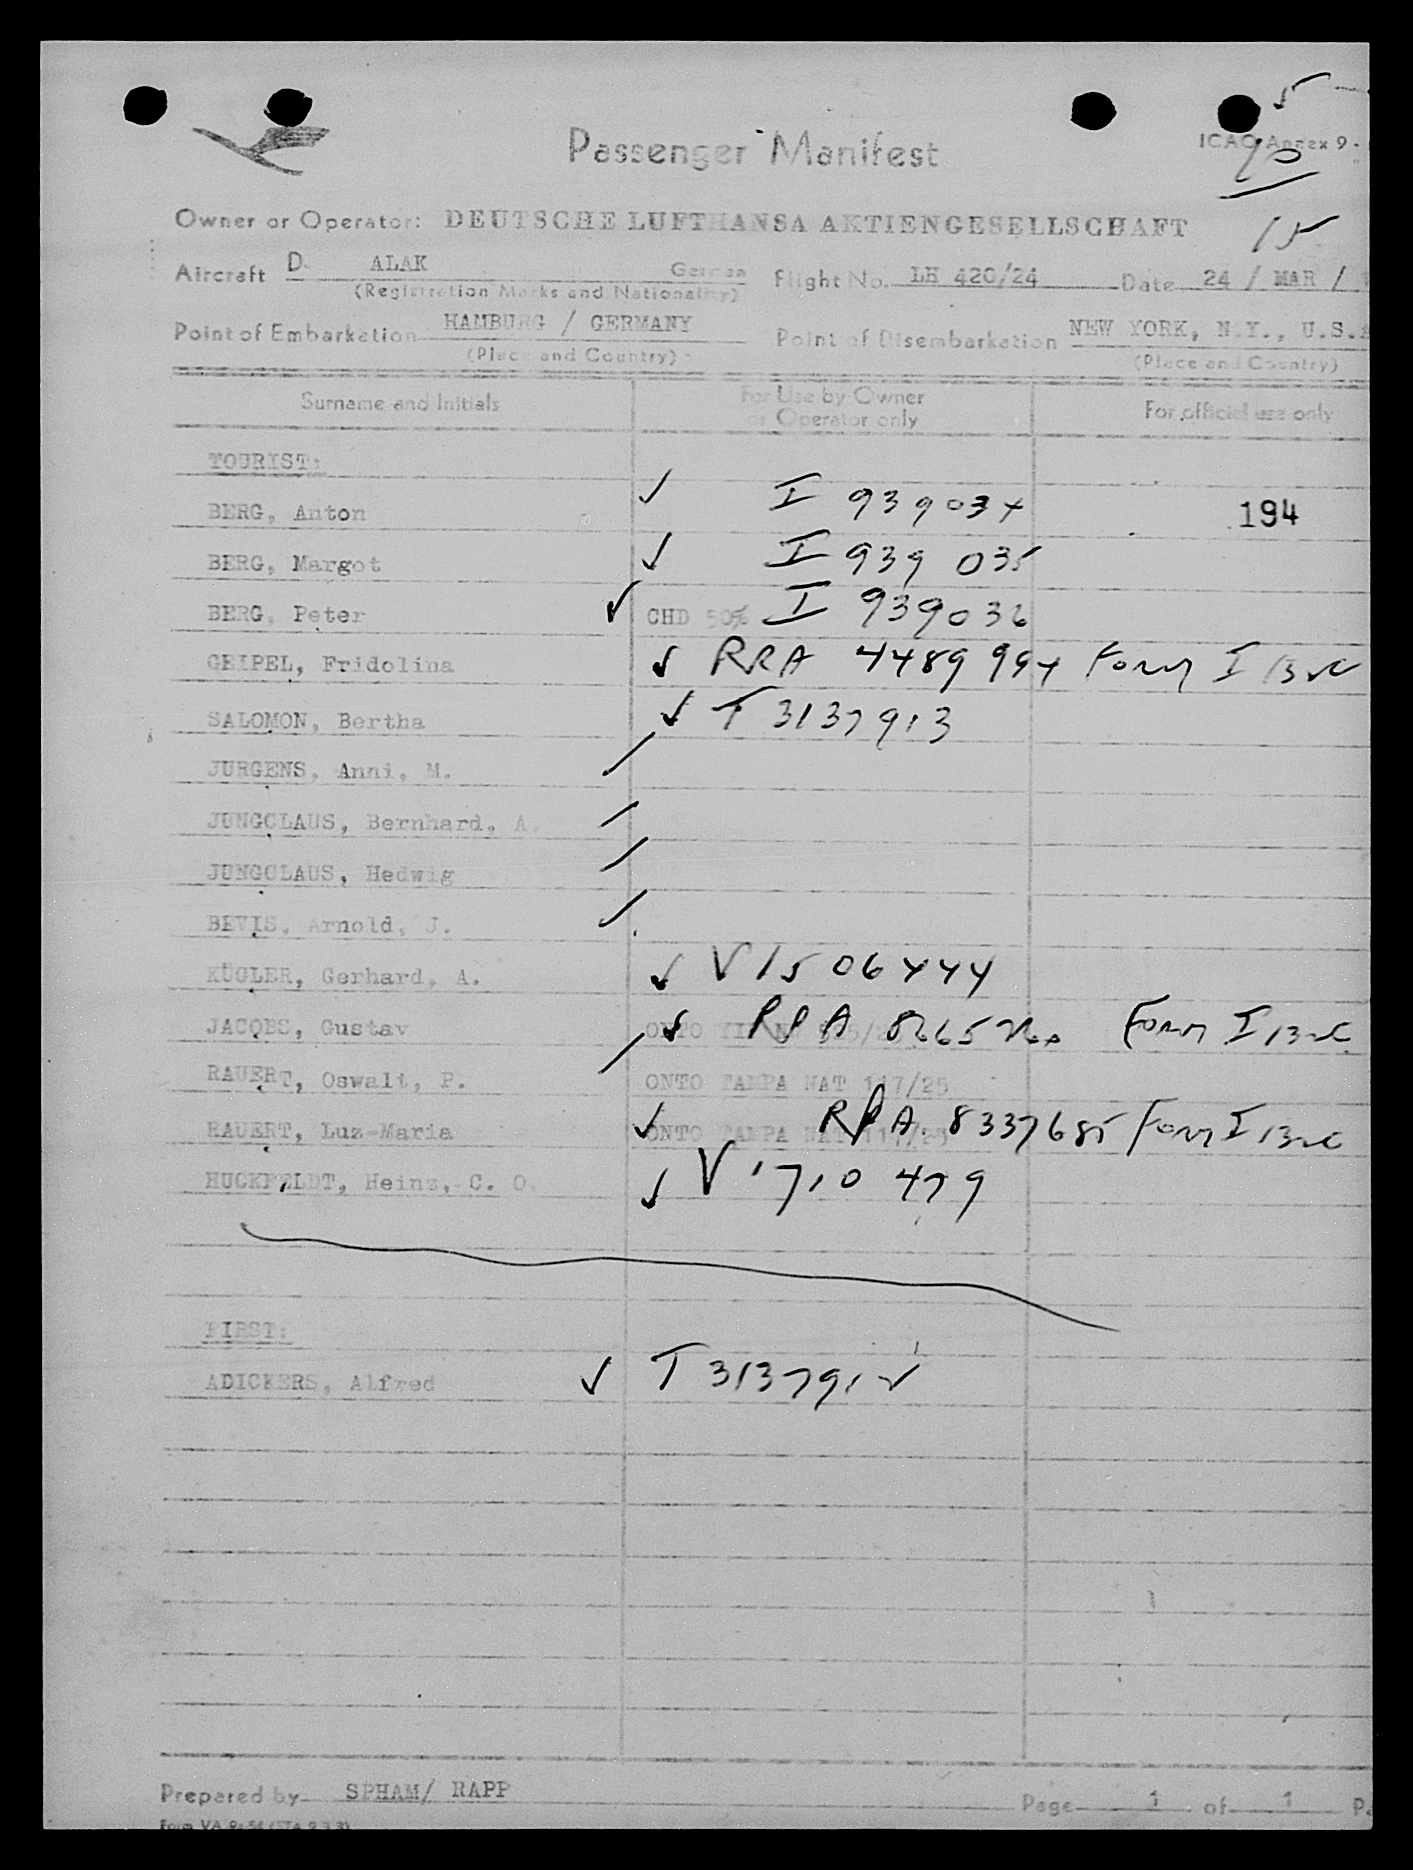 5
Passenger Manifest
ICAO Annex 9 -
10
Owner or Operator: DEUTSCHE LUFTHANSA AKTIENGESELLSCHAFT
15
Aircraft D- ALAK German Flight No. LH 420/24 Date 24 / MAR /
(Registration Marks and Nationality)
Point of Embarkation HAMBURG / GERMANY Point of Disembarkation NEW YORK, N.Y., U.S.
(Place and Country) (Place and Country)
Surname and Initials For Use by Owner or Operator only For official use only
TOURIST:
BERG, Anton ✓ I 939034 194
BERG, Margot ✓ I 939 035
BERG, Peter ✓ CHD 50% I 939036
GEIPEL, Fridolina ✓ RRA 4489994 Form I
SALOMON, Bertha ✓ T 3137913
JURGENS, Anni, M.
JUNGCLAUS, Bernhard, A.
JUNGCLAUS, Hedwig
BEVIS, Arnold, J.
KÜGLER, Gerhard, A. ✓ V1506444
JACOBS, Gustav ONTO ✓ RRA Form I
RAUERT, Oswalt, P. ONTO TAMPA NAT 117/25
RAUERT, Luz-Maria ✓ ONTO TAMPA NAT 117/25 RRA 8337685 Form I
HUCKFELDT, Heinz, C. O. ✓ V 1710 479
FIRST:
ADICKERS, Alfred ✓ T 3137912
Prepared by SPHAM/ RAPP Page 1 of 1
Form VA